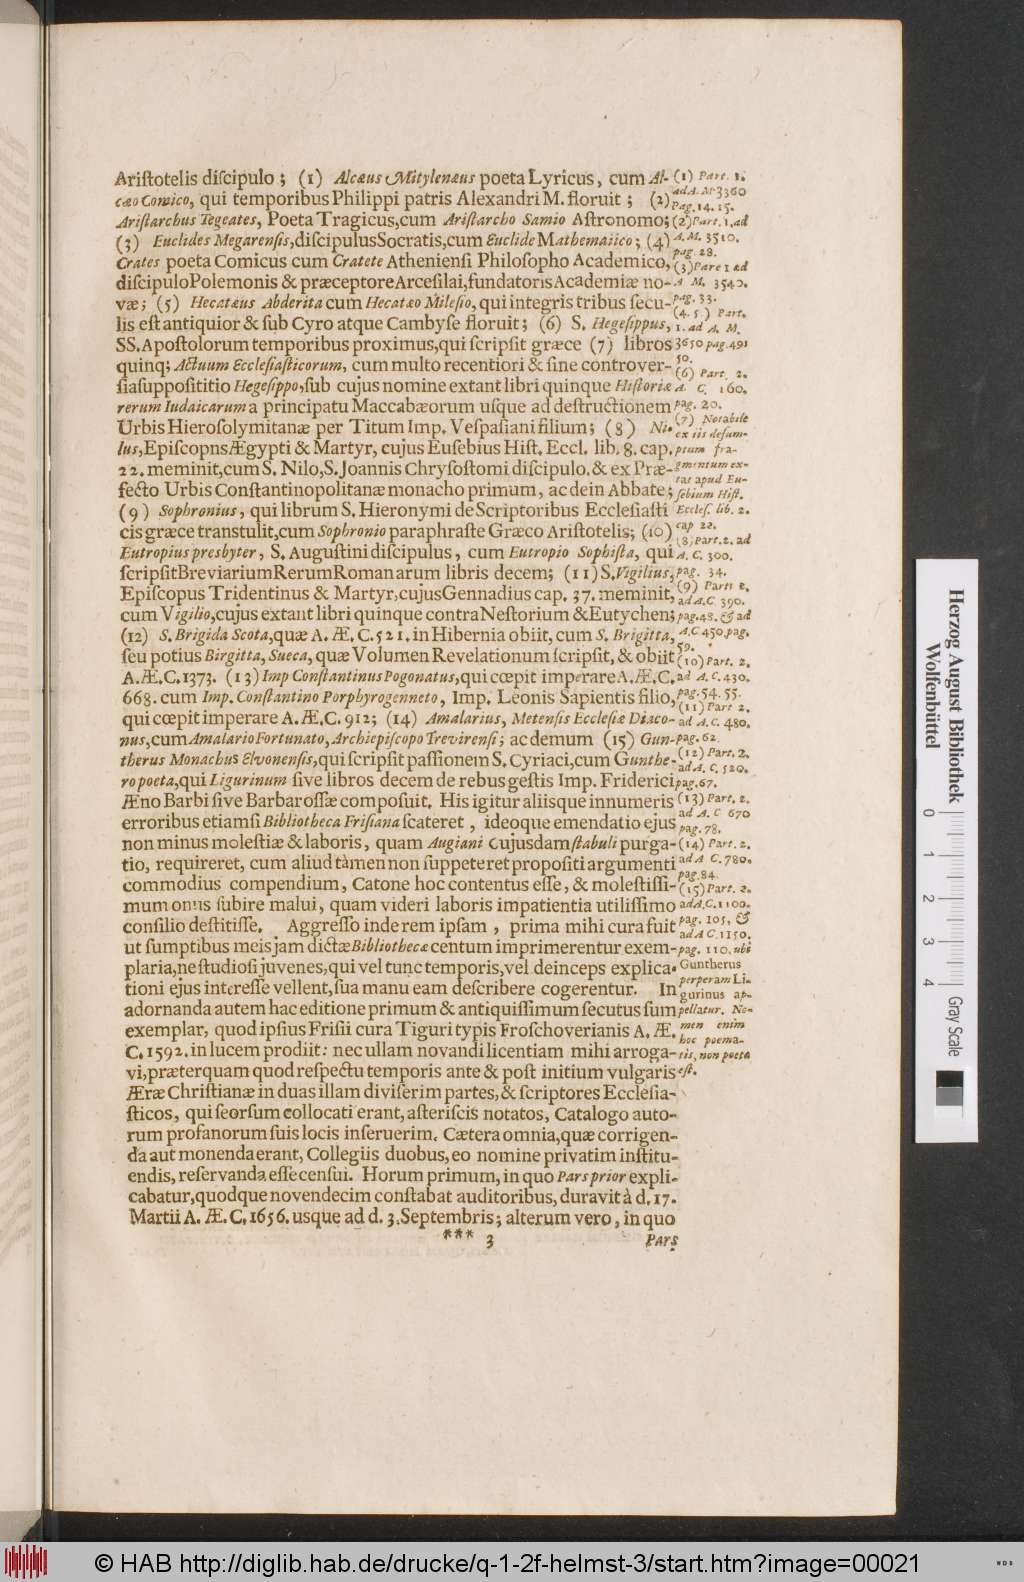 Ariſtotelis diſcipulo; (1) Alcæus Mitylenæus poeta Lyricus, cum Al-
cæo Comico, qui temporibus Philippi patris Alexandri M. floruit; (2)
Ariſtarchus Tegeates, Poeta Tragicus, cum Ariſtarcho Samio Aſtronomo;
(3) Euclides Megarenſis, diſcipulus Socratis, cum Euclide Mathematico; (4)
Crates poeta Comicus cum Cratete Athenienſi Philoſopho Academico,
diſcipulo Polemonis & præceptore Arceſilai, fundatoris Academiæ no-
væ; (5) Hecatæus Abderita cum Hecatæo Mileſio, qui integris tribus ſecu-
lis eſt antiquior & ſub Cyro atque Cambyſe floruit; (6) S. Hegeſippus,
SS. Apoſtolorum temporibus proximus, qui ſcripſit græce (7) libros
quinq; Actuum Eccleſiaſticorum, cum multo recentiori & ſine controver-
ſia ſuppoſititio Hegeſippo, ſub cujus nomine extant libri quinque Hiſtoriæ
rerum Iudaicarum a principatu Maccabæorum uſque ad deſtructionem
Urbis Hieroſolymitanæ per Titum Imp. Veſpaſiani filium; (8) Ni-
lus, Epiſcopns Ægypti & Martyr, cujus Euſebius Hiſt. Eccl. lib. 8. cap.
22. meminit, cum S. Nilo, S. Joannis Chryſoſtomi diſcipulo. & ex Præ-
fecto Urbis Conſtantinopolitanæ monacho primum, ac dein Abbate;
(9) Sophronius, qui librum S. Hieronymi de Scriptoribus Eccleſiaſti
cis græce transtulit, cum Sophronio paraphraſte Græco Ariſtotelis; (10)
Eutropius presbyter, S. Auguſtini diſcipulus, cum Eutropio Sophiſta, qui
ſcripſit Breviarium Rerum Romanarum libris decem; (11) S. Vigilius,
Epiſcopus Tridentinus & Martyr, cujus Gennadius cap. 37. meminit,
cum Vigilio, cujus extant libri quinque contra Neſtorium & Eutychen;
(12) S. Brigida Scota, quæ A. Æ. C. 521. in Hibernia obiit, cum S. Brigitta,
ſeu potius Birgitta, Sueca, quæ Volumen Revelationum ſcripſit, & obiit
A. Æ. C. 1373. (13) Imp Conſtantinus Pogonatus, qui cœpit imperare A. Æ. C.
668. cum Imp. Conſtantino Porphyrogenneto, Imp. Leonis Sapientis filio,
qui cœpit imperare A. Æ. C. 912; (14) Amalarius, Metenſis Eccleſiæ Diaco-
nus, cum Amalario Fortunato, Archiepiſcopo Trevirenſi; ac demum (15) Gun-
therus Monachus Elvonenſis, qui ſcripſit paſſionem S. Cyriaci, cum Gunthe-
ro poeta, qui Ligurinum ſive libros decem de rebus geſtis Imp. Friderici
Æno Barbi ſive Barbaroſſæ compoſuit. His igitur aliisque innumeris
erroribus etiamſi Bibliotheca Friſiana ſcateret, ideoque emendatio ejus
non minus moleſtiæ & laboris, quam Augiani cujusdam ſtabuli purga-
tio, requireret, cum aliud tàmen non ſuppeteret propoſiti argumenti
commodius compendium, Catone hoc contentus eſſe, & moleſtiſſi-
mum onus ſubire malui, quam videri laboris impatientia utiliſſimo
conſilio deſtitiſſe. Aggreſſo inde rem ipſam, prima mihi cura fuit
ut ſumptibus meis jam dictæ Bibliothecæ centum imprimerentur exem-
plaria, ne ſtudioſi juvenes, qui vel tunc temporis, vel deinceps explica-
tioni ejus intereſſe vellent, ſua manu eam deſcribere cogerentur. In
adornanda autem hac editione primum & antiquiſſimum ſecutus ſum
exemplar, quod ipſius Friſii cura Tiguri typis Froſchoverianis A. Æ.
C. 1592. in lucem prodiit: nec ullam novandi licentiam mihi arroga-
vi, præterquam quod reſpectu temporis ante & poſt initium vulgaris
Æræ Chriſtianæ in duas illam diviſerim partes, & ſcriptores Eccleſia-
ſticos, qui ſeorſum collocati erant, aſteriſcis notatos, Catalogo auto-
rum profanorum ſuis locis inſeruerim. Cætera omnia, quæ corrigen-
da aut monenda erant, Collegiis duobus, eo nomine privatim inſtitu-
endis, reſervanda eſſe cenſui. Horum primum, in quo Pars prior expli-
cabatur, quodque novendecim conſtabat auditoribus, duravit à d. 17.
Martii A. Æ. C. 1656. usque ad d. 3. Septembris; alterum vero, in quo
*** 3 Pars
(1) Part. 1.
ad A. M 3360
Pag. 14. 15.
(2) Part. 1. ad
A. M. 3510.
pag. 28.
(3) Part 1 ad
A M. 3540.
pag. 33.
(4. 5.) Part.
1. ad A. M.
3650 pag. 49
50.
(6) Part. 2.
A. C. 160.
pag. 20.
(7) Notabile
ex iis deſum-
ptum fra-
gmentum ex-
tat apud Eu-
ſebium Hiſt.
Eccleſ. lib. 2.
cap 22.
(8) Part. 2. ad
A. C. 300.
pag. 34.
(9) Part. 2.
ad A. C 390.
pag. 48. & ad
A. C 450. pag.
59.
(10) Part. 2.
ad A. C. 430.
pag. 54. 55.
(11) Part 2.
ad A. C. 480.
pag. 62.
(12) Part. 2.
ad A. C. 520.
pag. 67.
(13) Part. 2.
ad A. C 670
pag. 78.
(14) Part. 2.
ad A C. 780.
pag. 84.
(15) Part. 2.
ad A. C. 1100.
pag. 105. &
ad A C. 1150.
pag. 110. ubi
Guntherus
perperam Li-
gurinus ap-
pellatur. No-
men enim
hoc poema-
tis, non poeta
eſt.
Herzog August Bibliothek
Wolfenbüttel
0 1 2 3 4
Gray Scale
© HAB http://diglib.hab.de/drucke/q-1-2f-helmst-3/start.htm?image=00021